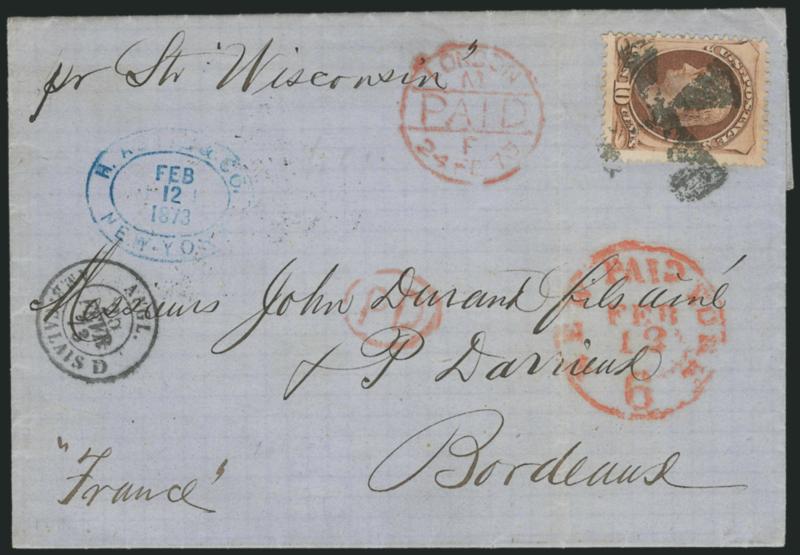 pr Str "Wisconsin"
LONDON
PAID
F
24 FE 73
& CO.
FEB
12
1873
NEW-YORK
Messieurs John Durand fils ainé
PD
ANGL.
CALAIS D
PAID
FEB
12
6
NEW YORK
& P Darrieux
Bordeaux
"France"